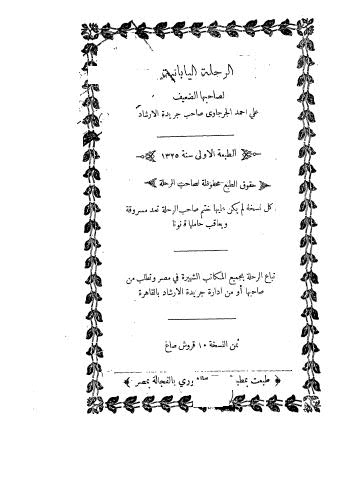 الرحلة اليابانية
لصاحبها الضعيف
علي احمد الجرجاوي صاحب جريدة الارشاد
الطبعة الاولى سنة ١٣٢٥
حقوق الطبع محفوظة لصاحب الرحلة
كل نسخة لم يكن عليها ختم صاحب الرحلة تعد مسروقة
ويعاقب حاملها قانونا
تباع الرحلة بجميع المكاتب الشهيرة في مصر وتطلب من
صاحبها أو من ادارة جريدة الارشاد بالقاهرة
ثمن النسخة ١٠ قروش صاغ
طبعت بمطبعة وري بالفجالة بمصر